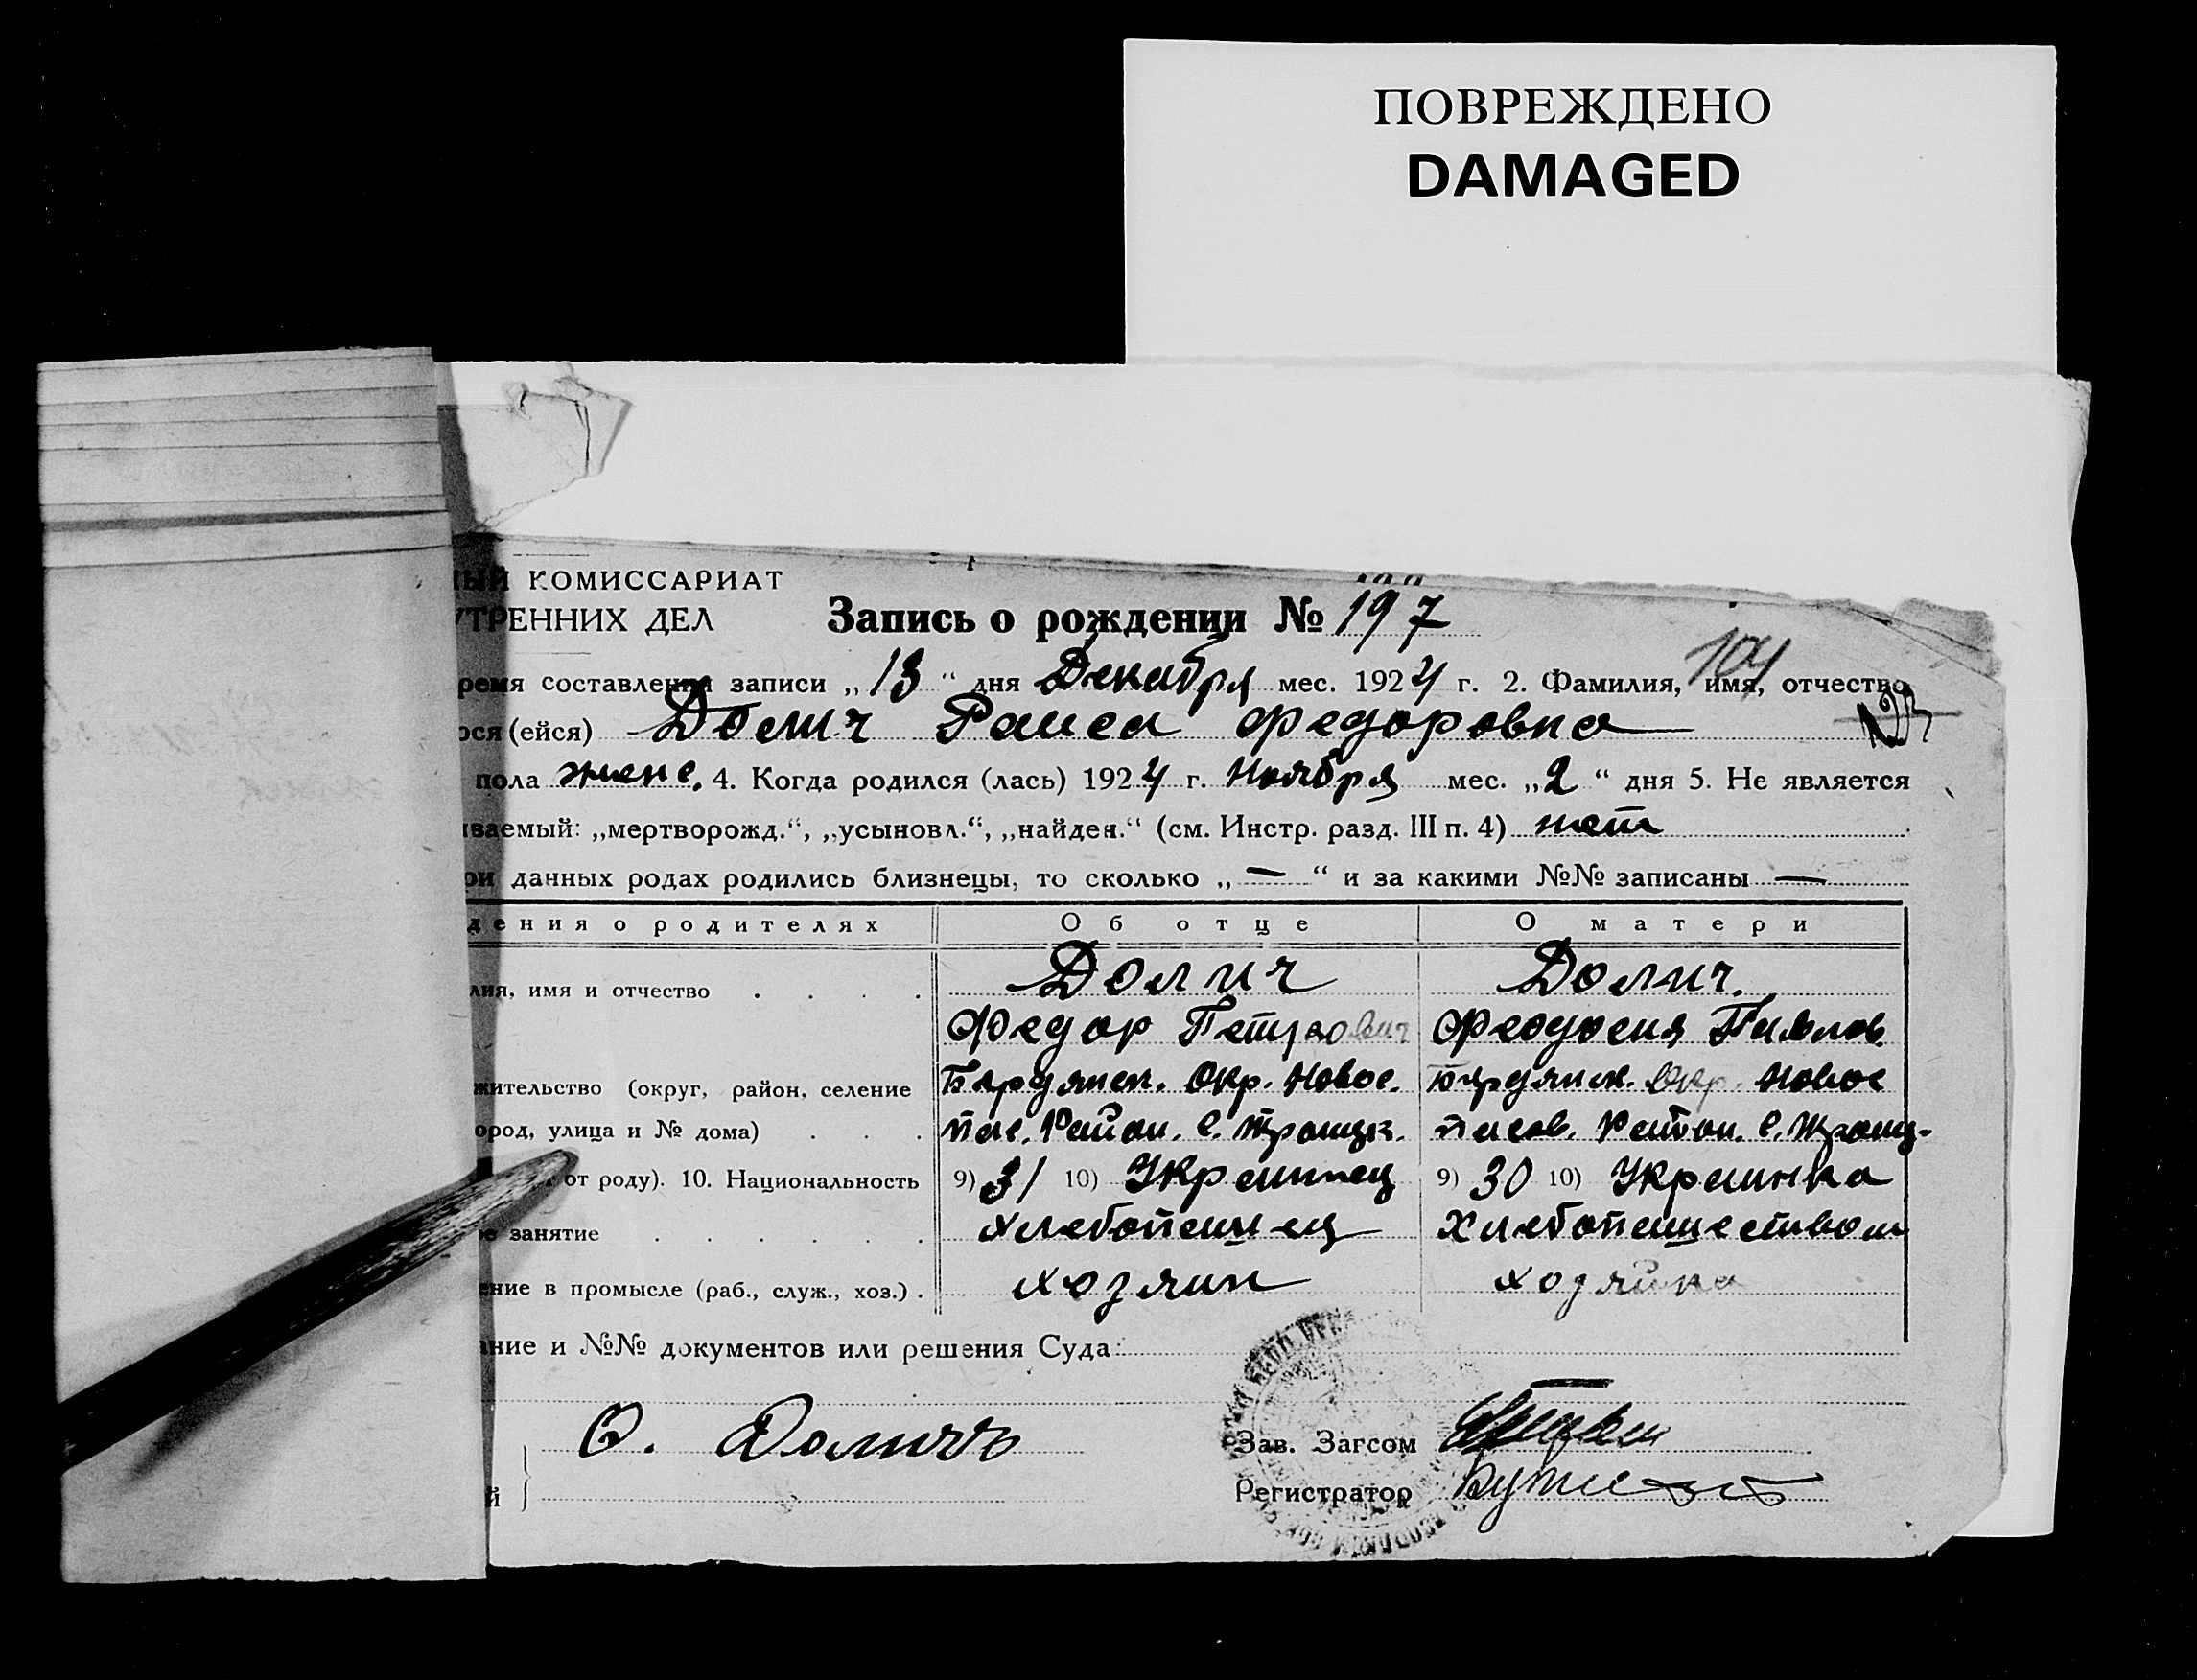 ПОВРЕЖДЕНО
DAMAGED
ЫЙ КОМИССАРИАТ
УТРЕННИХ ДЕЛ
Запись о рождении № 197
104
ремя составления записи „13“ дня Декабря мес. 1924 г. 2. Фамилия, имя, отчество
ося (ейся) Долич Раиса Федоровна
пола женс. 4. Когда родился (лась) 1924 г. Ноября мес. „2“ дня 5. Не является
иваемый: „мертворожд.“, „усыновл.“, „найден.“ (см. Инстр. разд. III п. 4) нет
ри данных родах родились близнецы, то сколько „—“ и за какими №№ записаны —
дения о родителях Об отце О матери
лия, имя и отчество . . . . Долич Долич.
Федор Петрович Феодосия Павлов.
жительство (округ, район, селение Бердянск. Окр. Новос. Бердянск. Окр. Новос
ород, улица и № дома) . . . пас. Район. с. Троицк. пасов. Район. с. Троиц-
от роду). 10. Национальность 9) 31 10) Украинец 9) 30 10) Украинка
ое занятие . . . . . . Хлебопашец Хлебопашеством
ение в промысле (раб., служ., хоз.) . хозяин хозяйка
ание и №№ документов или решения Суда:
Ѳ. Доличъ
Зав. Загсом
й Регистратор